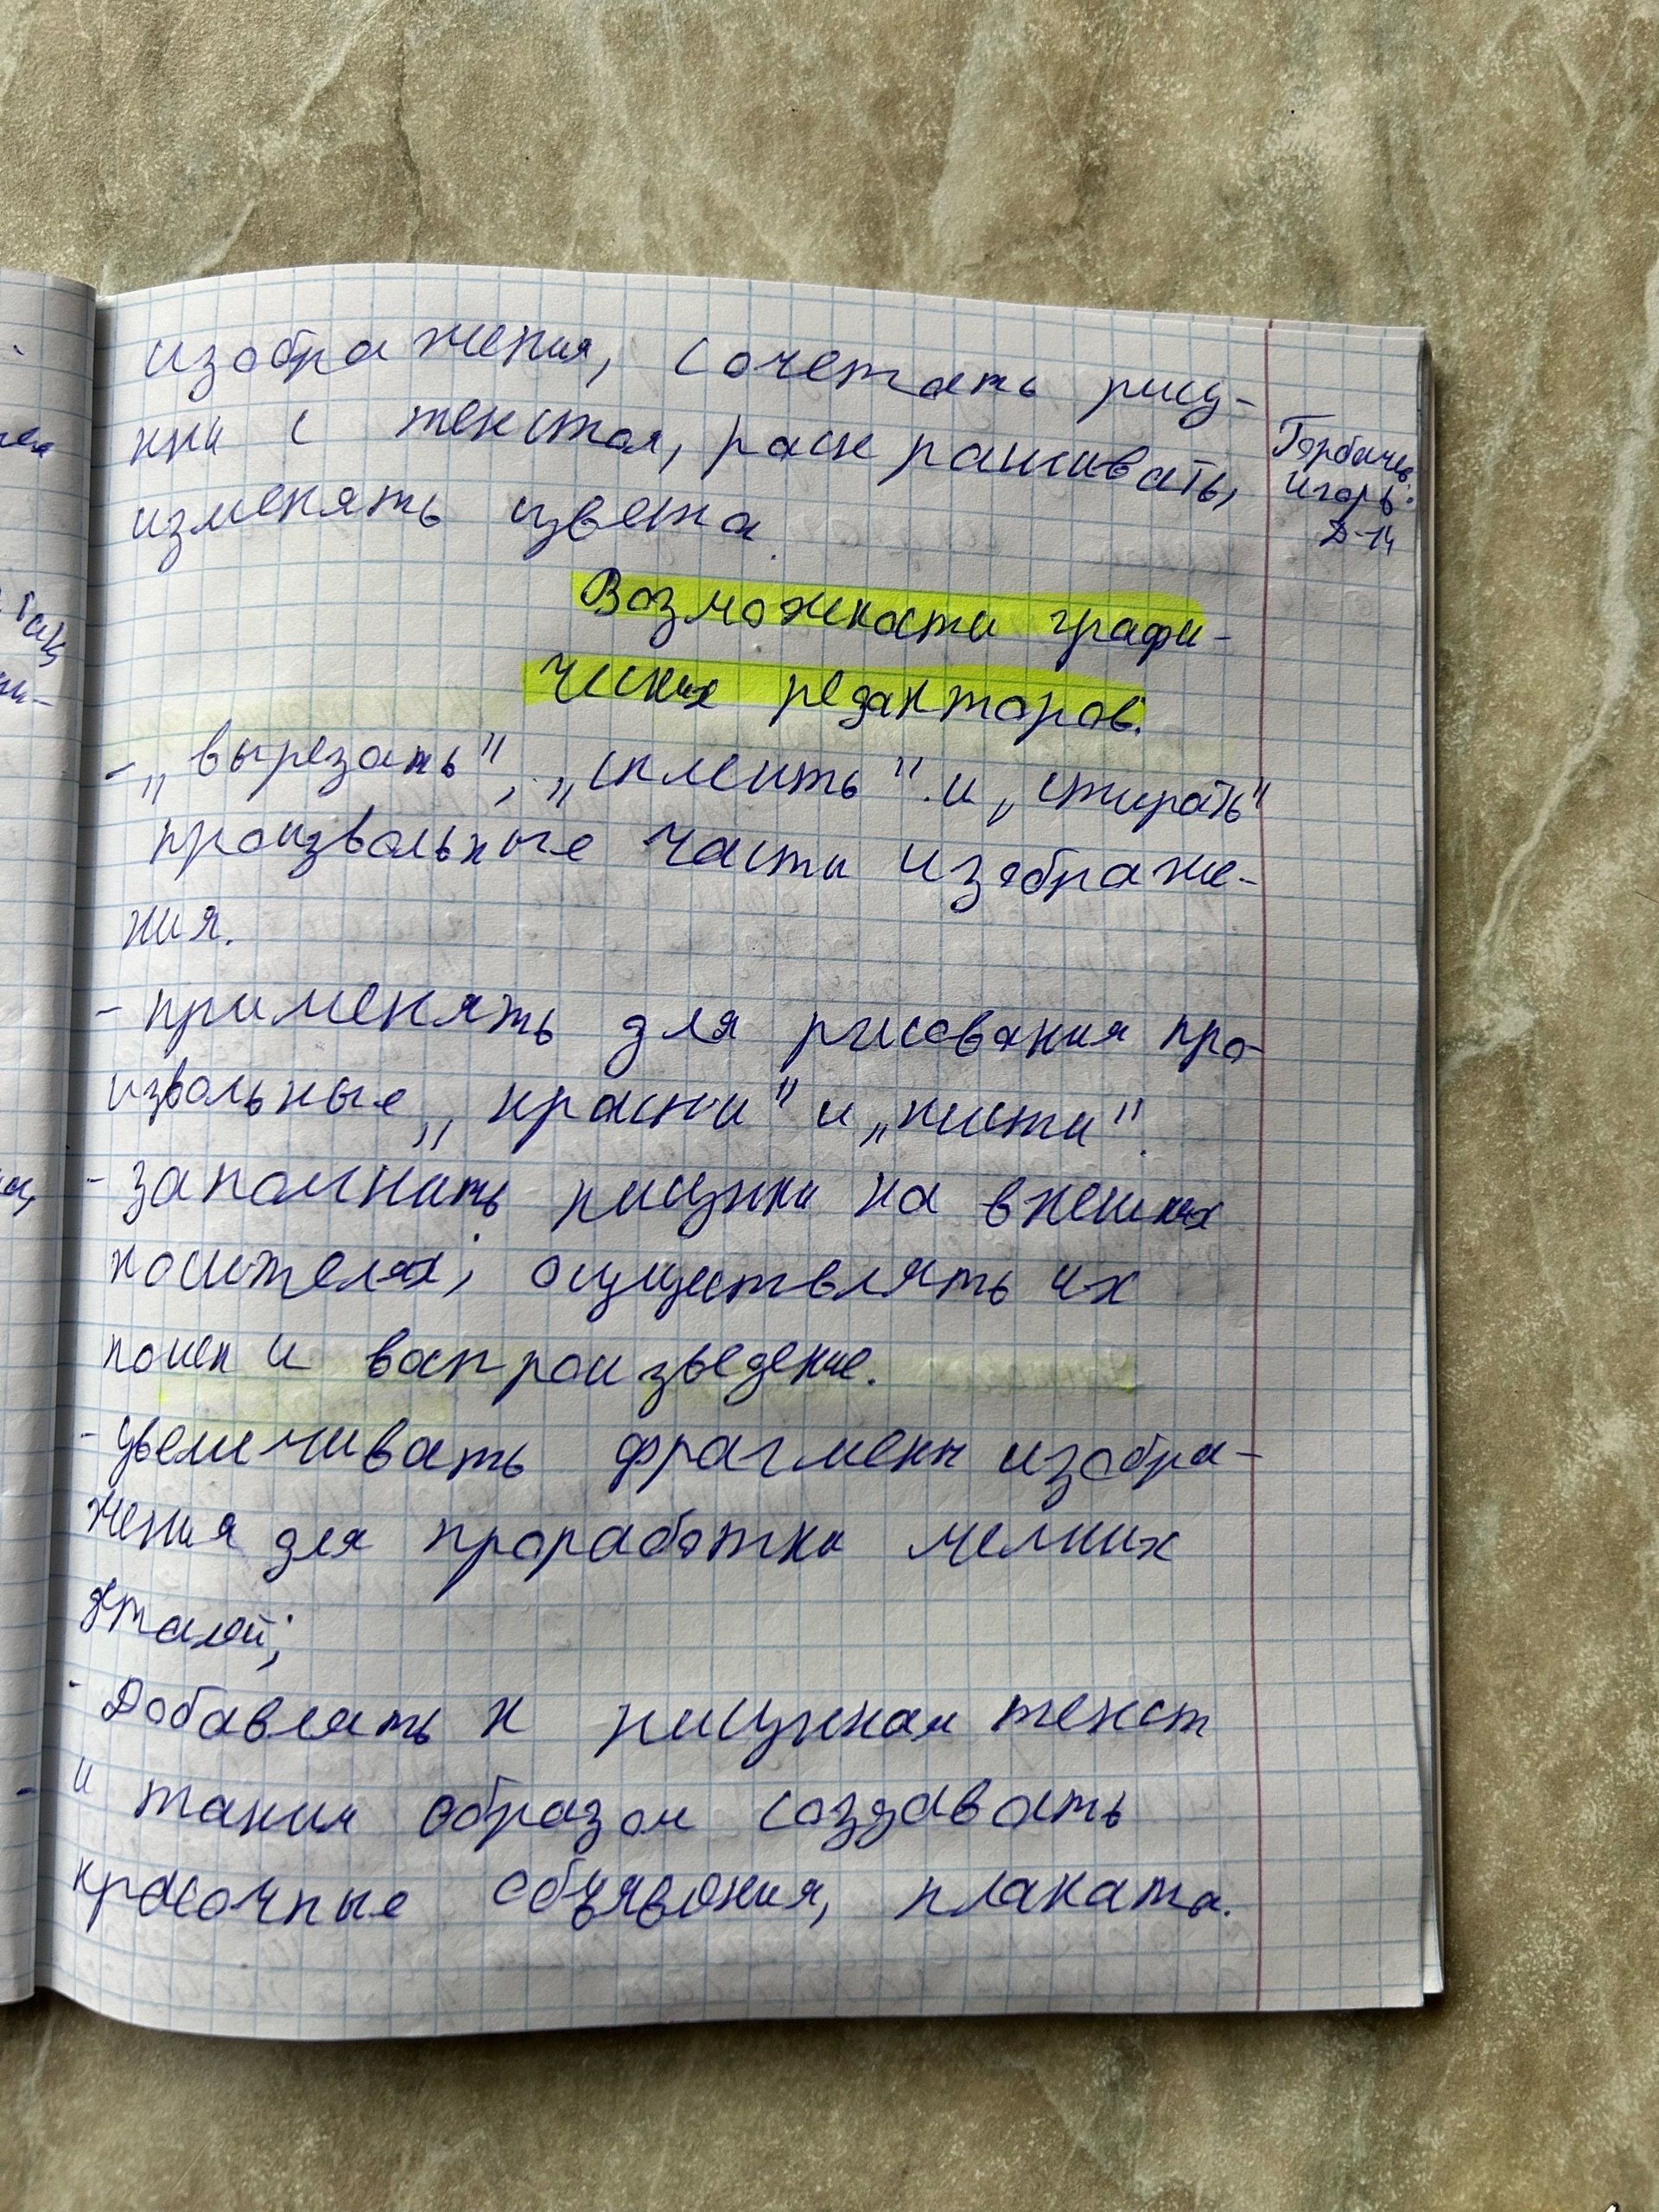 изображения, сочетать рису-
нки с текстом, раскрашивать,
изменять цвета.
Горбачев
Игорь.
Д-14
Возможности графи-
ческих редакторов.
- „вырезать", „склеить" и „стирать"
произвольные части изображе-
ния.
- применять для рисования про-
извольные „краски" и „кисти".
- запомнить рисунки на внешних
носителях, осуществлять их
поиск и воспроизведение.
- увеличивать фрагмент изобра-
жения для проработки мелких
деталей;
- Добавлять к рисункам текст
и таким образом создавать
красочные объявления, плаката.